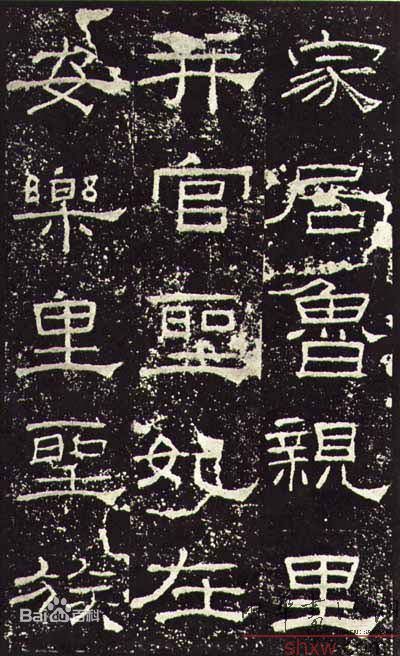 家居魯親里
并官聖妃在
安樂里聖族
Bai百科